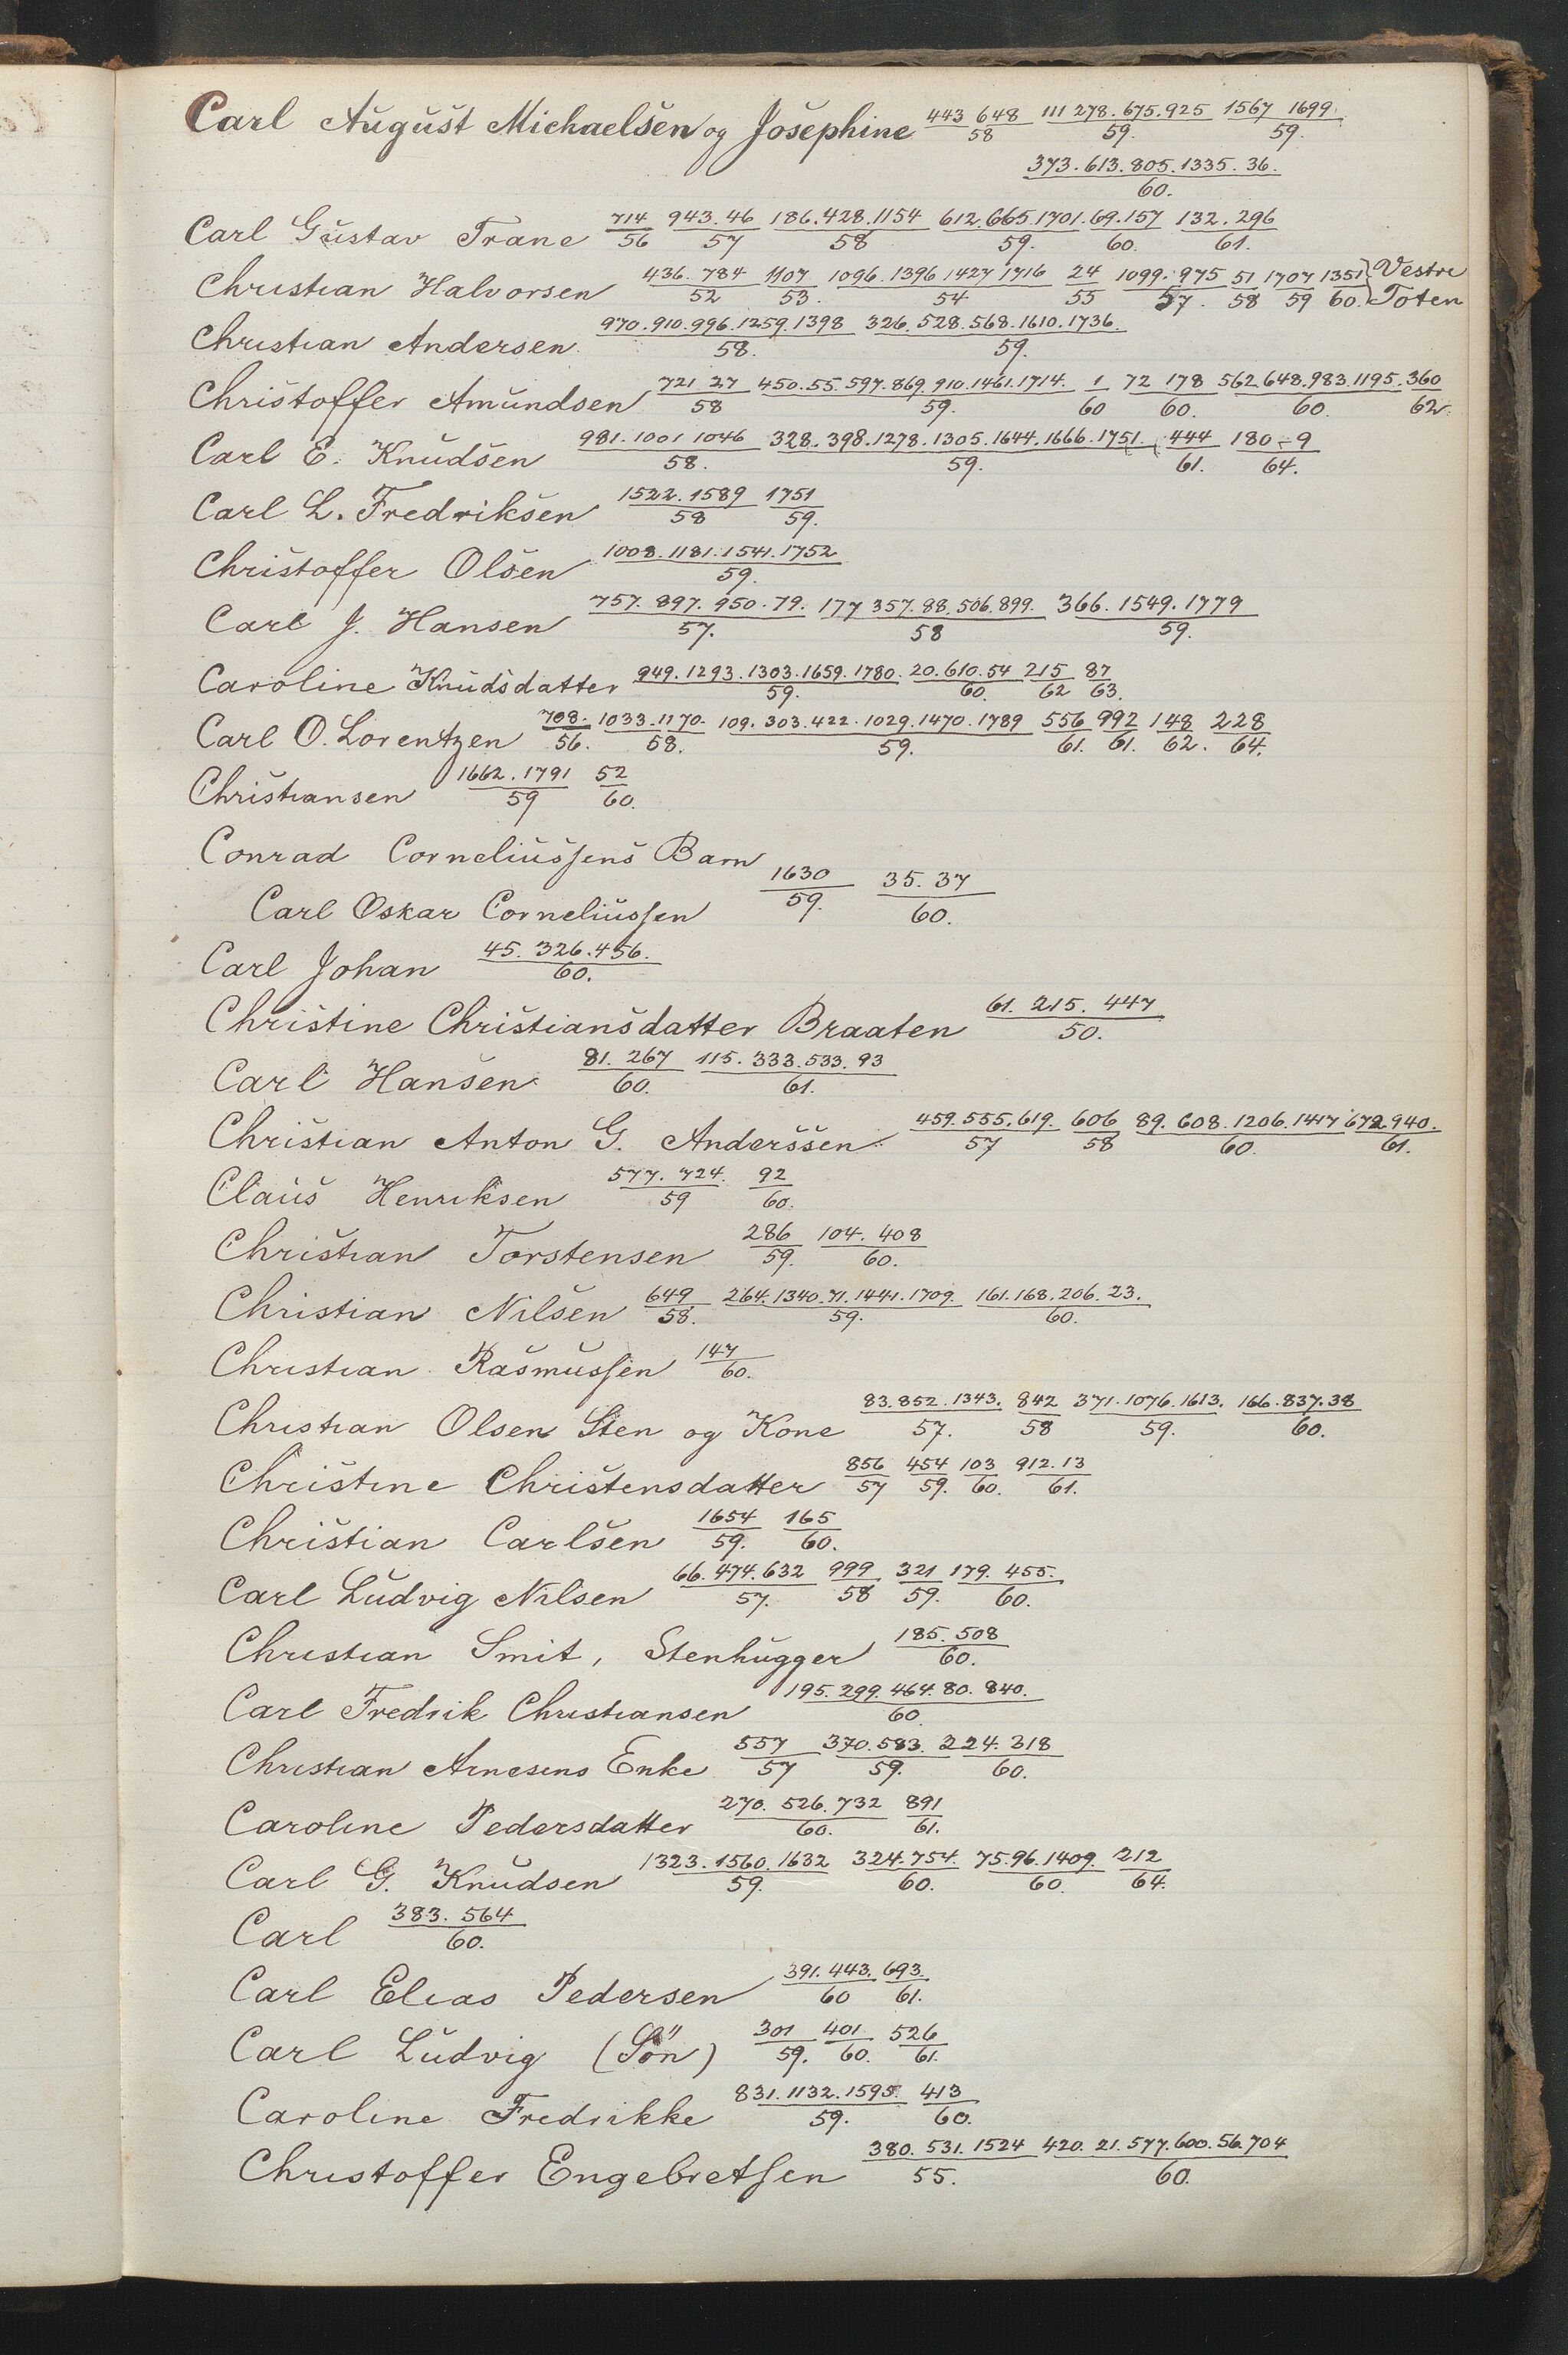 Carl August Michaelsen og Josephine 443 648/58 111 278.675.925/59. 1567 1699./59.
373.613.805.1335.36./60.
Carl Gustav Trane 714/56 943.46/57 186.428.1154/58 612.665.1701./59. 69.157/60. 132.296/61.
Christian Halvorsen 436.784/52 1107/53. 1096.1396 1427 1716/54 24/55 1099.975/57. 51/58 1707/59 1351/60. } Vestre Toten
Christian Andersen. 970.910.996.1259.1398/58. 326.528.568.1610.1736./59.
Christoffer Amundsen 721 27/58 450.55.597.869.910.1461.1714./59. 1/60 72 178/60. 562.648.983.1195./60. 360/62.
Carl E. Knudsen 981.1001 1046/58. 328.398.1278.1305.1644.1666.1751./59. 444/61. 180-9/64.
Carl L. Fredriksen 1522.1589/58 1751/59.
Christoffer Olsen 1008.1181.1541.1752/59.
Carl J. Hansen 757.897.950.79./57. 177 357.88.506.899./58 366.1549.1779/59.
Caroline Knudsdatter 949.1293.1303.1659.1780./59. 20.610.54/60. 215/62 87/63.
Carl O. Lorentzen 708./56. 1033.1170./58. 109.303.422.1029.1470.1789/59. 556/61. 992/61. 148/62. 228/64.
Christiansen 1662.1791/59 52/60.
Conrad Corneliussens Barn
Carl Oskar Corneliussen 1630/59. 35.37/60.
Carl Johan 45.326.456./60.
Christine Christiansdatter Braaten 61.215.447/50.
Carl Hansen 81.267/60. 115.333.533.93/61.
Christian Anton G. Anderssen 459.555.619./57 606/58 89.608.1206.1417/60. 672.940./61.
Claus Henriksen 577.724./59 92/60.
Christian Torstensen 286/59. 104.408/60.
Christian Nilsen 649/58. 264.1340.71.1441.1709./59. 161.168.206.23./60.
Christian Rasmussen 147/60.
Christian Olsen Sten og Kone 83.852.1343./57. 842/58 371.1076.1613./59. 166.837.38/60.
Christine Christensdatter 856/57 454/59. 103/60. 912.13/61.
Christian Carlsen 1654/59. 165/60.
Carl Ludvig Nilsen 66.474.632/57. 999/58 321/59. 179.455./60.
Christian Smit, Stenhugger 185.508/60.
Carl Fredrik Christiansen 195.299.464.80.840./60.
Christian Arnesens Enke 557/57 370.583./59. 224.318/60.
Caroline Pedersdatter 270.526.732/60. 891/61.
Carl G. Knudsen 1323.1560.1632/59. 324.754./60. 75.96.1409./60. 212/64.
Carl 383.564/60.
Carl Elias Pedersen 391.443./60 693./61.
Carl Ludvig (Sön) 301/59. 401./60. 526/61.
Caroline Fredrikke 831.1132.1595./59. 413/60.
Christoffer Engebretsen 380.531.1524/55. 420.21.577.600.56.704/60.